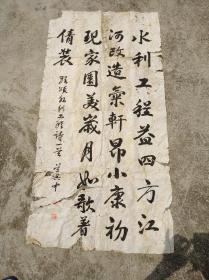 水利工程益四方江
河改造氣軒昂小康初
现家園美歲月如歌着
倩装